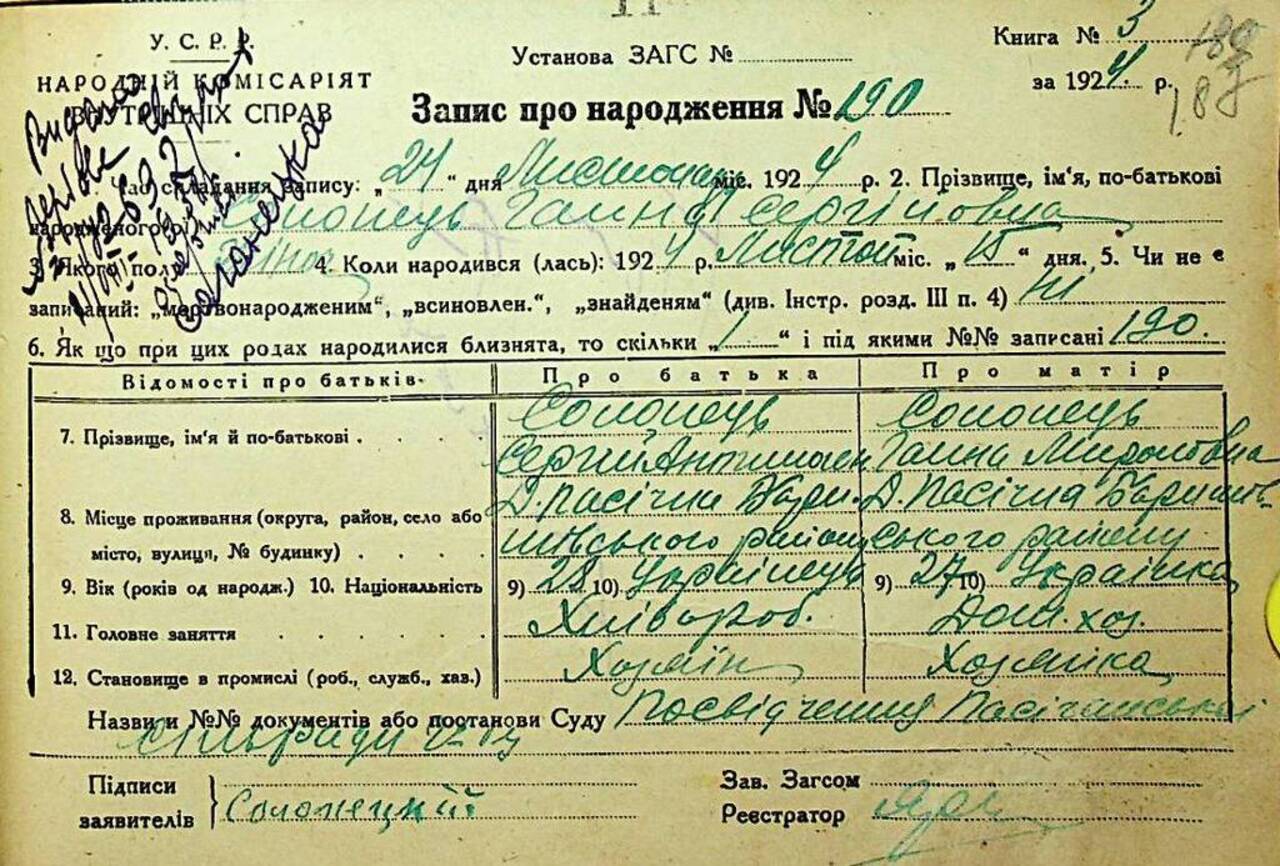 У. С. Р. Р.
НАРОДНІЙ КОМІСАРІЯТ
ВНУТРІШНІХ СПРАВ
Установа ЗАГС №
Книга № 3
за 1924 р.
189
188
Запис про народження № 190
Час складання запису: „24“ дня Листопад міс. 1924 р. 2. Прізвище, ім'я, по-батькові
народженого: Солонець Ганна Сергійовна
3. Якого пола: Жіноч 4. Коли народився (лась): 1924 р. Листоп міс. „15“ дня. 5. Чи не є
записаний: „мертвонародженим“, „всиновлен.“, „знайденям“ (див. Інстр. розд. III п. 4) Ні
6. Як що при цих родах народилися близнята, то скільки „1“ і під якими №№ записані 190.
Відомості про батьків. Про батька Про матір
7. Прізвище, ім'я й по-батькові Солонець Солонець
Сергій Ганна Мироновна
8. Місце проживання (округа, район, село або Д. Пасічна Бари- Д. Пасічна Баришів-
місто, вулиця, № будинку) шівського району ського району
9. Вік (років од народж.) 10. Національність 9) 28 10) Українець 9) 27 10) Українка
11. Головне заняття Хлібороб. Дом. хоз.
12. Становище в промислі (роб., служб., хав.) Хозяїн Хозяйка
Назви и №№ документів або постанови Суду Посвідчення Пасічанської
сільради
Підписи
заявителів Солонецкий
Зав. Загсом
Реєстратор